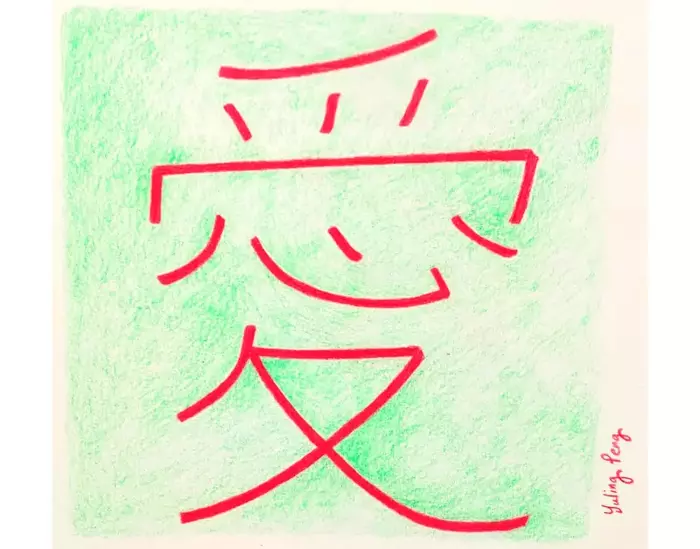 愛
Yuling Peng